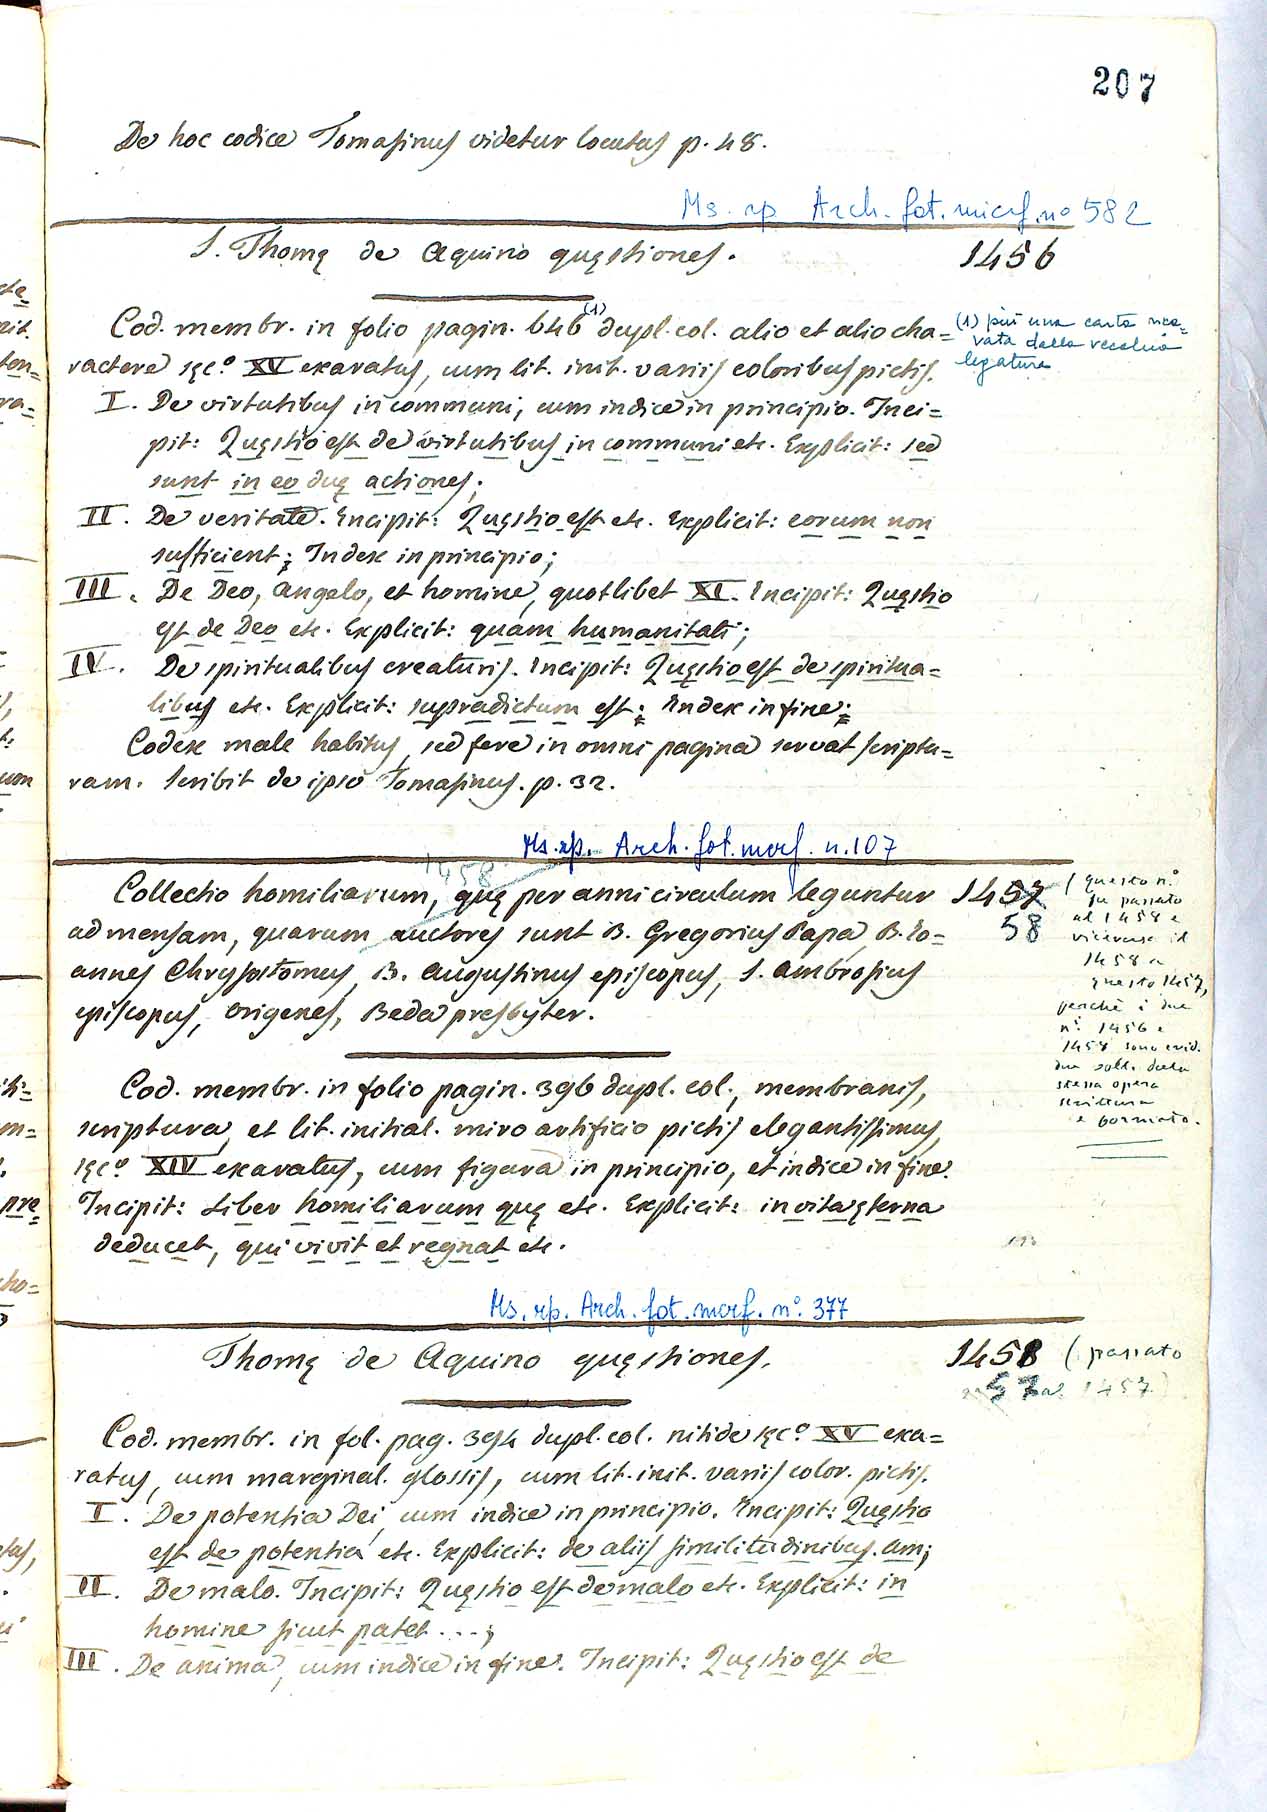 207
De hoc codice Tomasinus videtur locutus p. 48.
Ms. rp Arch. fot. micrf. n° 582
S. Thomę de Aquino quęstiones. 1456
Cod. membr. in folio pagin. 646 (1) dupl. col. alio et alio cha=
ractere sęc.° XV exaratus, cum lit. init. variis coloribus pictis.
(1) più una carta rica=
vata dalla vecchia
legatura
I. De virtutibus in communi, cum indice in principio. Inci=
pit: Quęstio est de virtutibus in communi etc. Explicit: sed
sunt in eo duę actiones;
II. De veritate. Incipit: Quęstio est etc. Explicit: eorum non
sufficient; Index in principio;
III. De Deo, angelo, et homine, quotlibet XI. Incipit: Quęstio
est de Deo etc. Explicit: quam humanitati;
IV. De spiritualibus creaturis. Incipit: Quęstio est de spiritua=
libus etc. Explicit: supradictum est; Index in fine;
Codex male habitus, sed fere in omni pagina servat scriptu=
ram. Scribit de ipso Tomasinus. p. 32.
Ms. rp. Arch. fot. mcrf. n. 107
1458
Collectio homiliarum, quę per anni circulum leguntur 1457
ad mensam, quarum auctores sunt B. Gregorius Papa, B. Io= 58
annes Chrysostomus, B. Augustinus episcopus, S. Ambrosius
episcopus, Origenes, Beda presbyter.
( questo n.°
fu passato
al 1458 e
viceversa il
1458 a
questo 1457,
perchè i due
n.i 1456 e
1458 sono evid.
due voll. della
stessa opera
scrittura
e formato.
Cod. membr. in folio pagin. 396 dupl. col., membranis,
scriptura, et lit. initial. miro artificio pictis elegantissimus,
sęc.° XIV exaratus, cum figura in principio, et indice in fine.
Incipit: Liber homiliarum quę etc. Explicit: in vita ęterna
deducet, qui vivit et regnat etc.
Ms. rp. Arch. fot. mcrf. n.° 377
Thomę de Aquino quęstiones. 1458 ( passato
57 al 1457)
Cod. membr. in fol. pag. 394 dupl. col. nitide sęc.° XV exa=
ratus, cum marginal. glossis, cum lit. init. variis color. pictis.
I. De potentia Dei, cum indice in principio. Incipit: Quęstio
est de potentia etc. Explicit: de aliis similitudinibus. am;
II. De malo. Incipit: Quęstio est de malo etc. Explicit: in
homine sicut patet . . . ;
III. De anima, cum indice in fine. Incipit: Quęstio est de